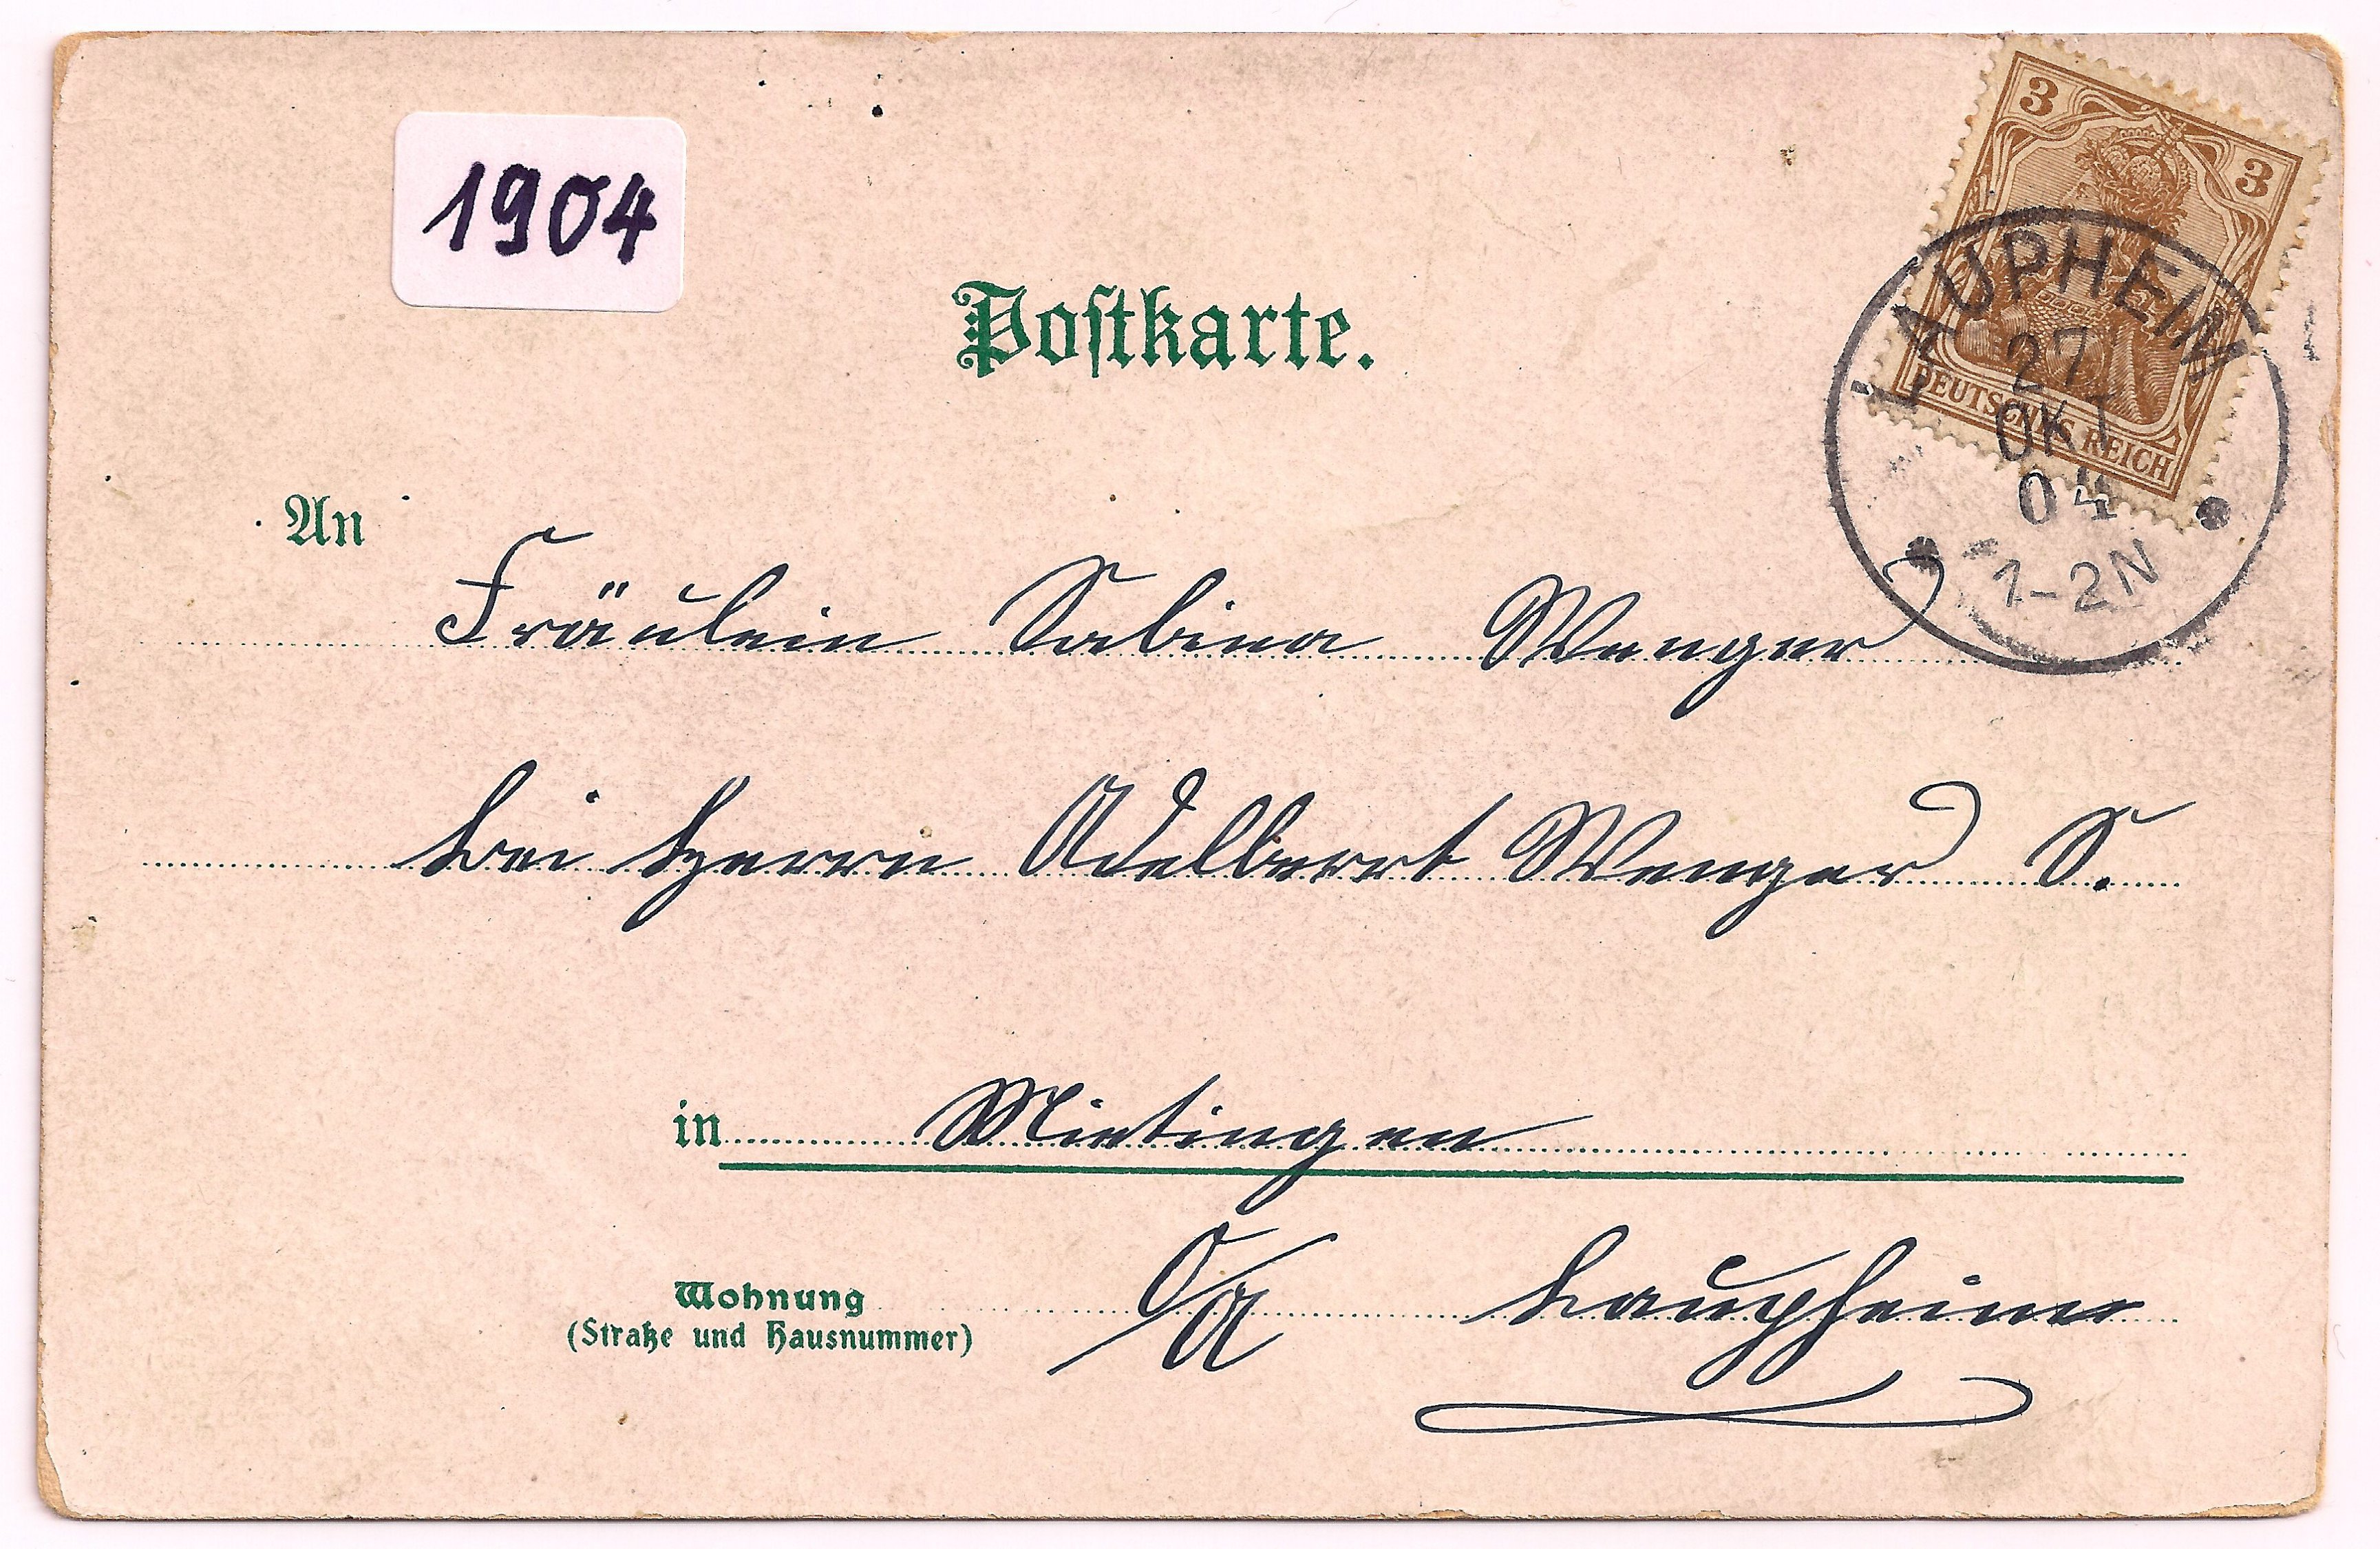 1904
Postkarte.
3 3
DEUTSCHES REICH
LAUPHEIM
27
OKT
04
1-2N
An
Fräulein Sabina Wenger
bei Herrn Adelbert Wenger S.
in Mietingen
Wohnung O/A Laupheim
(Straße und Hausnummer)